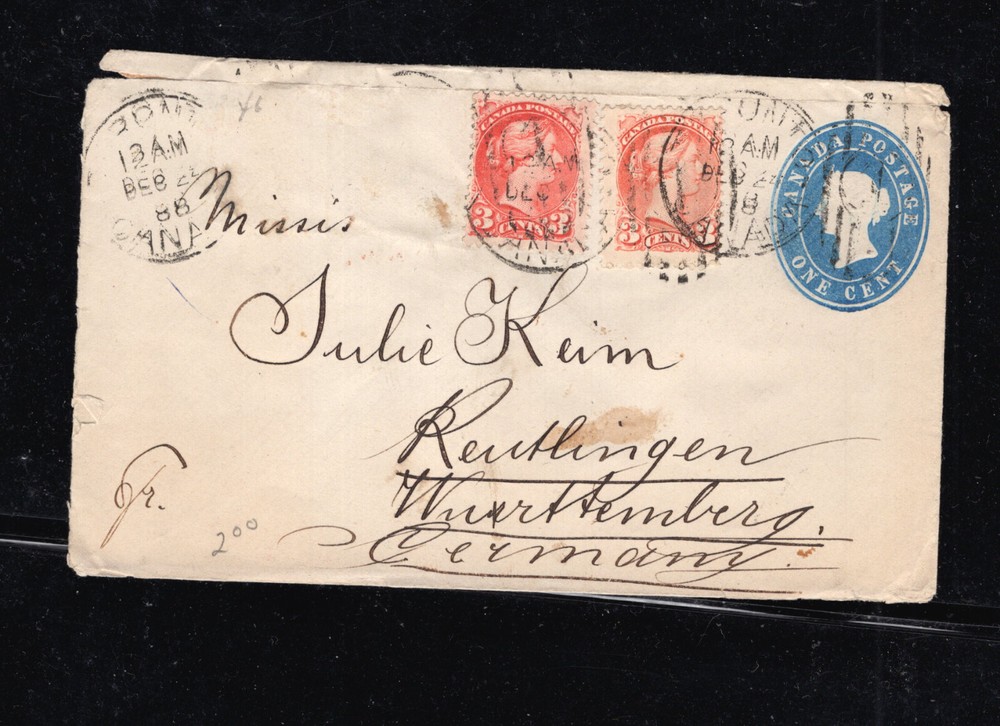 12 AM
DEC 22
88
CANADA POSTAGE
12 AM
DEC
3 CENTS 3
CANADA POSTAGE
3 CENTS
12 AM
DEC 2
8
CANADA POSTAGE
ONE CENT
Missis
Julie Keim
Reutlingen
Wuerttemberg.
Germany.
Fr.
200